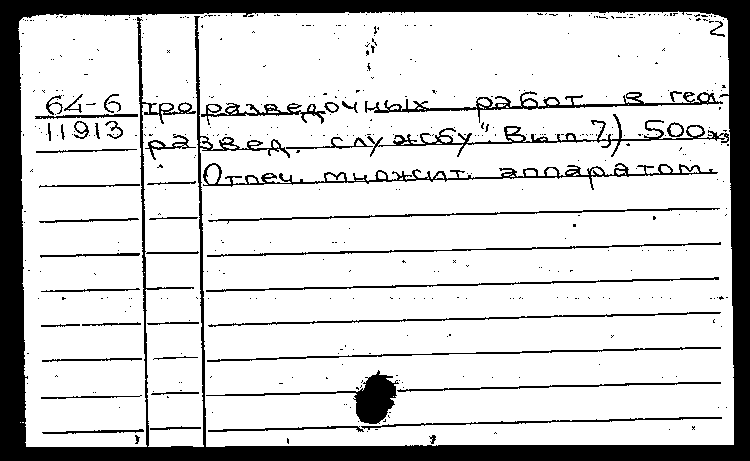 2
64-6 троразведочных работ в гео-
11913 развед. службу". Вып. 7,). 500 экз
Отпеч. множит. аппаратом.